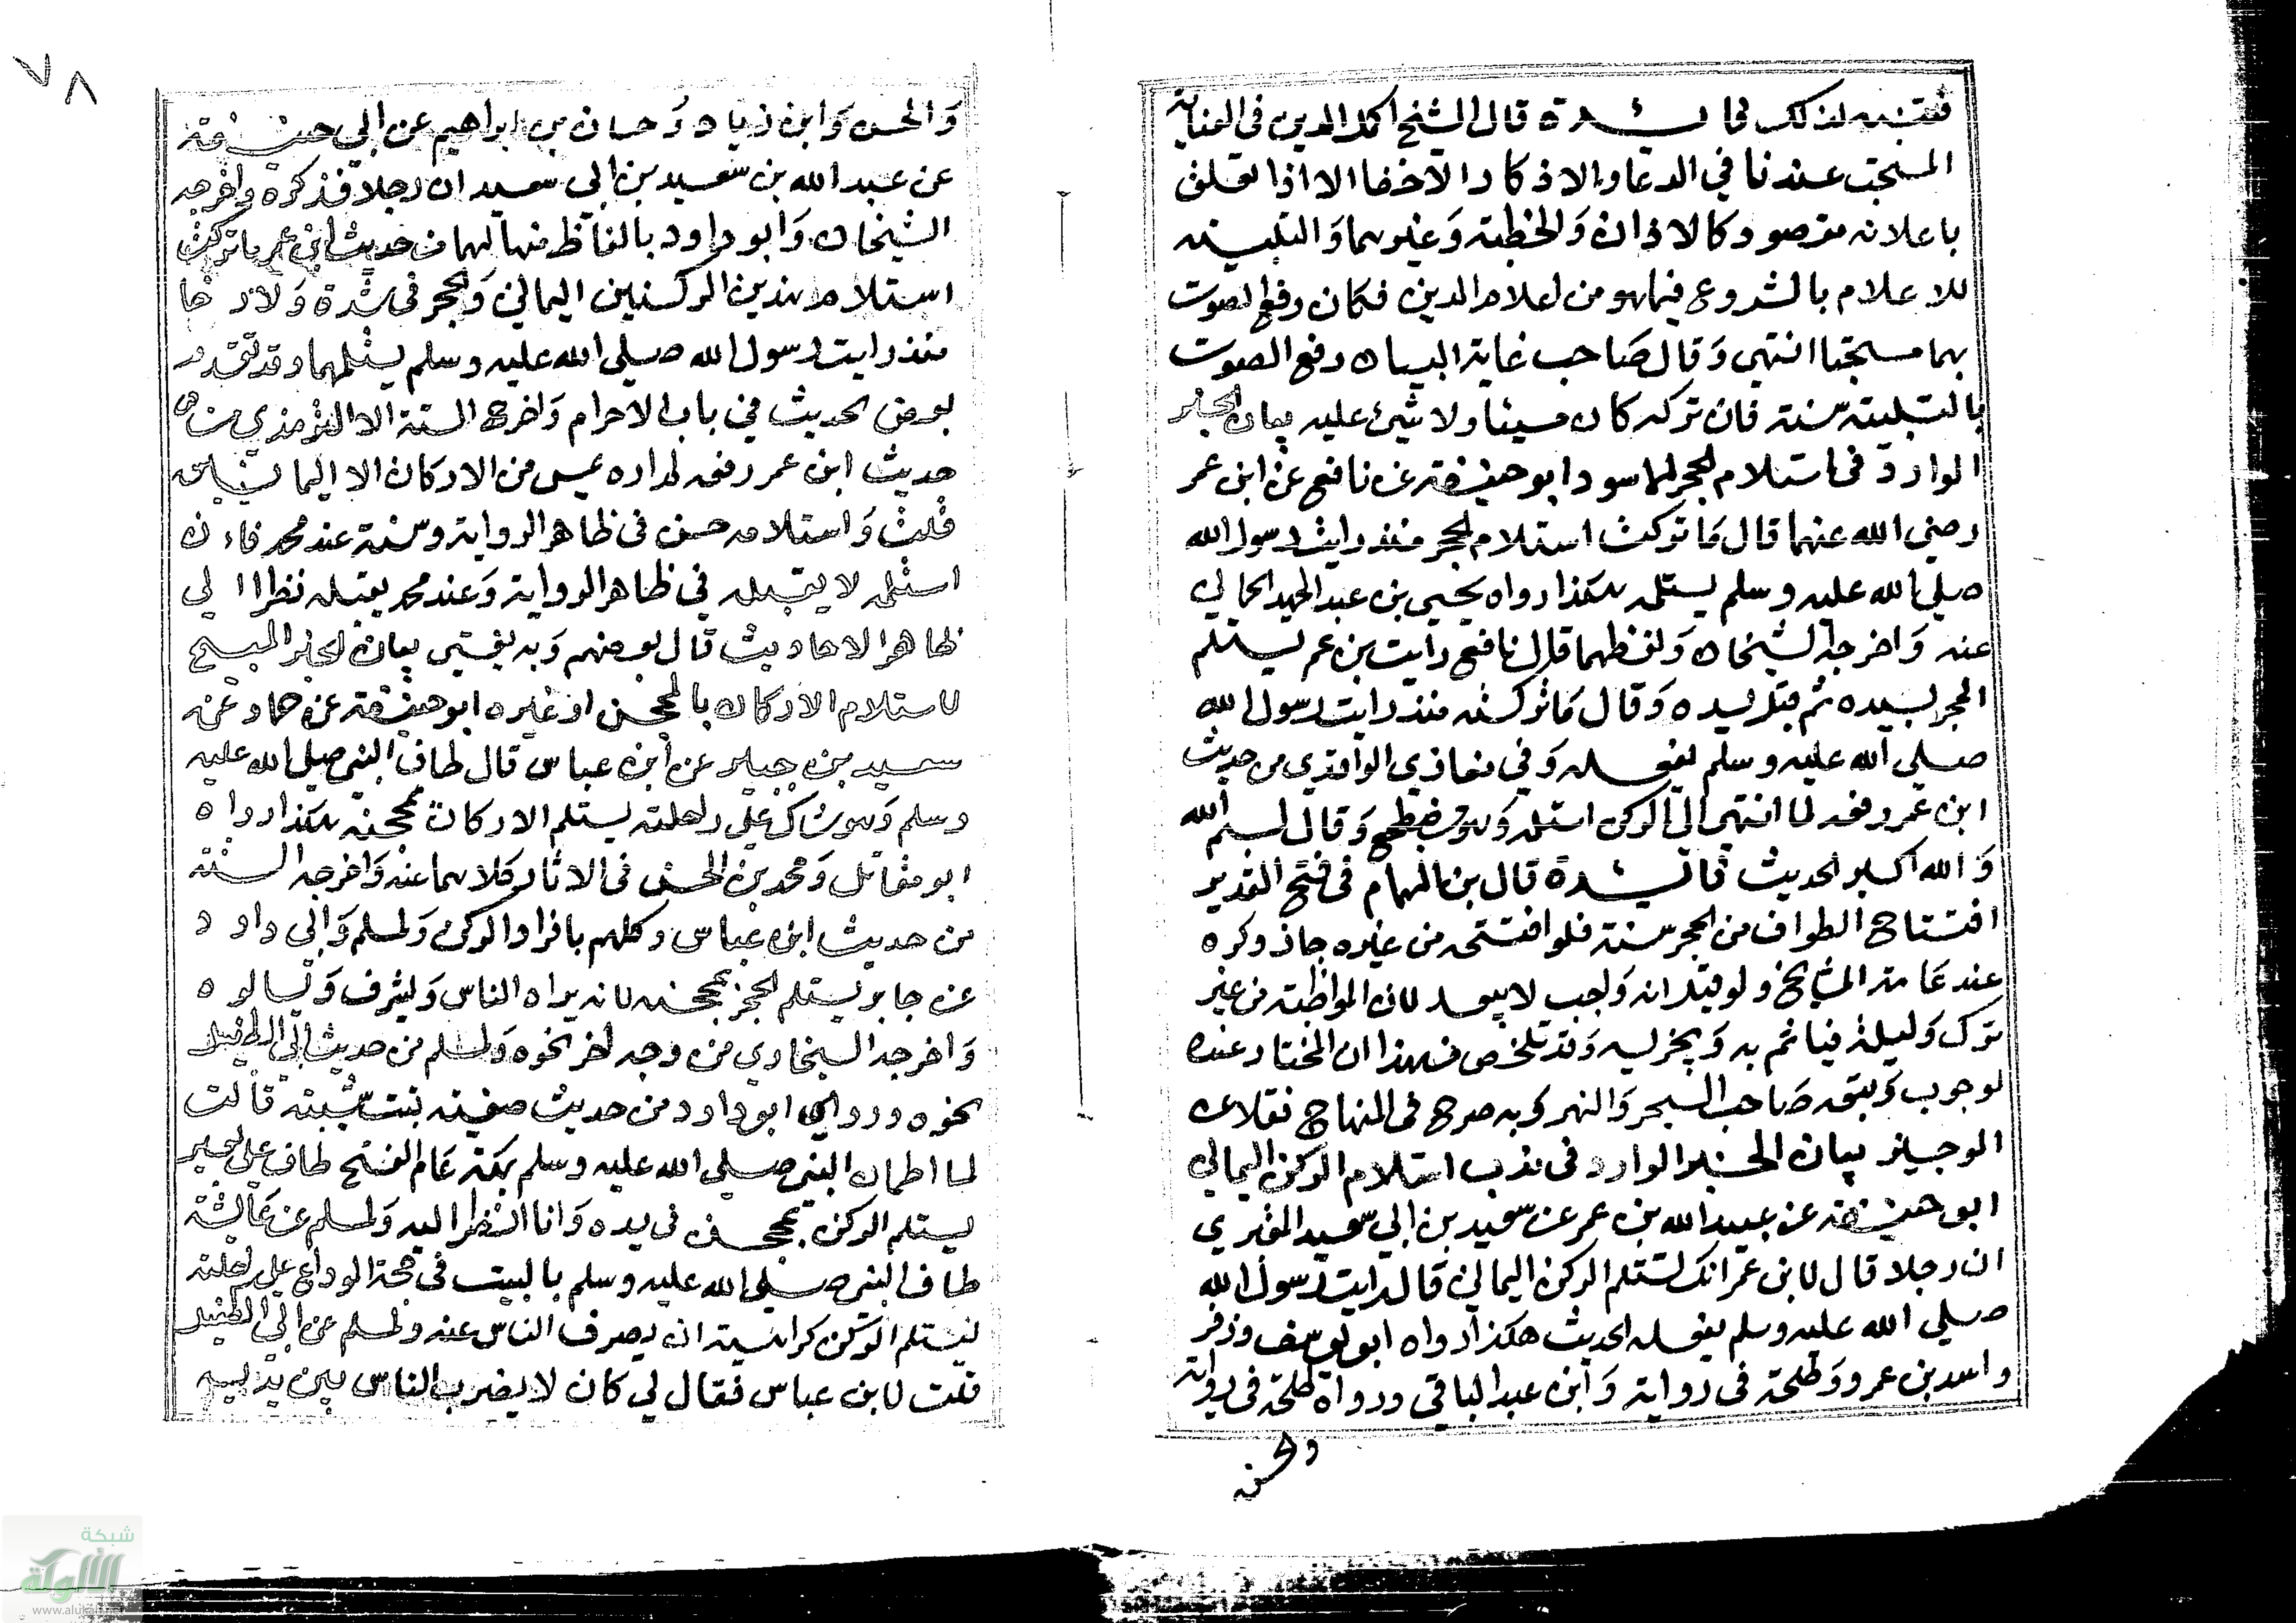 فتنبه لذلك فائدة قال الشيخ اكمل الدين في العناية
المستحب عندنا في الدعا والاذكار الاخفا الا اذا تعلق
باعلانه مقصود كالاذان والخطبة وغيرهما والتلبية
للاعلام بالشروع فيما هو من اعلام الدين فكان رفع الصوت
بها مستحبا انتهى وقال صاحب غاية البيان رفع الصوت
بالتلبية سنة فان تركه كان مسيئا ولا شيئ عليه بيان الخبر
الوارد في استلام الحجر الاسود ابو حنيفة عن نافع عن ابن عمر
رضي الله عنهما قال ما تركت استلام الحجر منذ رايت رسول الله
صلي الله عليه وسلم يستلمه هكذا رواه يحيى بن عبد الحميد الحماني
عنه واخرجه الشيخان ولفظهما قال نافع رايت بن عمر يستلم
الحجر بيده ثم قبل يده وقال ما تركته منذ رايت رسول الله
صلى الله عليه وسلم يفعله وفي مغازي الواقدي من حديث
ابن عمر رفعه لما انتهى الى الركن استلمه وهو مضطبع وقال بسم الله
والله اكبر الحديث فائدة قال بن الهمام في فتح القدير
افتتاح الطواف من الحجر سنة فلو افتتحه من غيره جاز وكره
عند عامة المشايخ ولو قيل انه واجب لا يبعد لان المواظبة من غير
ترك دليله فياثم به ويجزيه وقد تلخص من هذا ان المختار عنده
لوجوب وتبعه صاحب البحر والنهر وبه صرح في المنهاج نقلا عن
الوجيز بيان الخبر الوارد في ندب استلام الركن اليماني
ابو حنيفة عن عبيد الله بن عمر عن سعيد بن ابي سعيد المقبري
ان رجلا قال لابن عمر انك تستلم الركن اليماني قال رايت رسول الله
صلي الله عليه وسلم يفعله الحديث هكذا رواه ابو يوسف وزفر
واسد بن عمرو وطلحة في رواية وابن عبد الباقي ورواه طلحة في رواية
والحسن
٧٨
والحسن وابن زياد وحسان بن ابراهيم عن ابي حنيفة
عن عبد الله بن سعيد بن ابي سعيد ان رجلا فذكره واخرجه
الشيخان وابو داود بالفاظ منها لهما من حديث ابن عمر ما تركت
استلام هذين الركنين اليماني والحجر في شدة ولا رخا
منذ رايت رسول الله صلي الله عليه وسلم يستلمهما وقد تقدم
بعض الحديث في باب الاحرام واخرج الستة الا الترمذي من
حديث ابن عمر رفعه لم اره يمس من الاركان الا اليمانيين
قلت واستلامه حسن في ظاهر الرواية وسنة عند محمد فاءن
استلمه لا يقبله في ظاهر الرواية وعند محمد يقبله نظرا الي
ظاهر الاحاديث قال بعضهم وبه يفتى بيان الخبر المبيح
لاستلام الاركان بالمحجن او غيره ابو حنيفة عن حماد عن
سعيد بن جبير عن ابن عباس قال طاف النبي صلى الله عليه
وسلم وهو شاك على راحلته يستلم الاركان بمحجنه هكذا رواه
ابو مقاتل ومحمد بن الحسن في الاثار كلاهما عنه واخرجه الستة
من حديث ابن عباس وكلهم بافراد الركن ولمسلم وابي داود
عن جابر يستلم الحجر بمحجنه لانه يراه الناس وليشرف وليسالوه
واخرجه البخاري من وجه اخر نحوه ولمسلم من حديث ابي الطفيل
نحوه وروى ابو داود من حديث صفية بنت شيبة قالت
لما اطمان النبي صلى الله عليه وسلم بمكة عام الفتح طاف على بعير
يستلم الركن بمحجن في يده وانا انظر اليه ولمسلم عن عائشة
طاف النبي صلى الله عليه وسلم بالبيت في حجة الوداع على راحلته
يستلم الركن كراهية ان يصرف الناس عنه ولمسلم عن ابي الطفيل
قلت لابن عباس فقال لي كان لا يضرب الناس بين يديه
شبكة
الألوكة